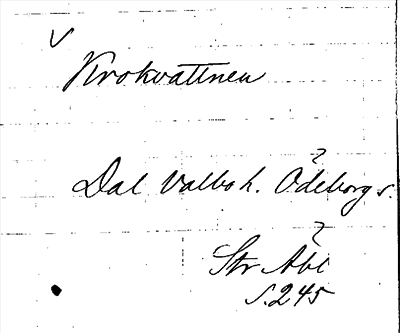 V
Krokvattnen
?
Dal Valbo h. Ödeborg s.
?
Str Åbl
s. 245